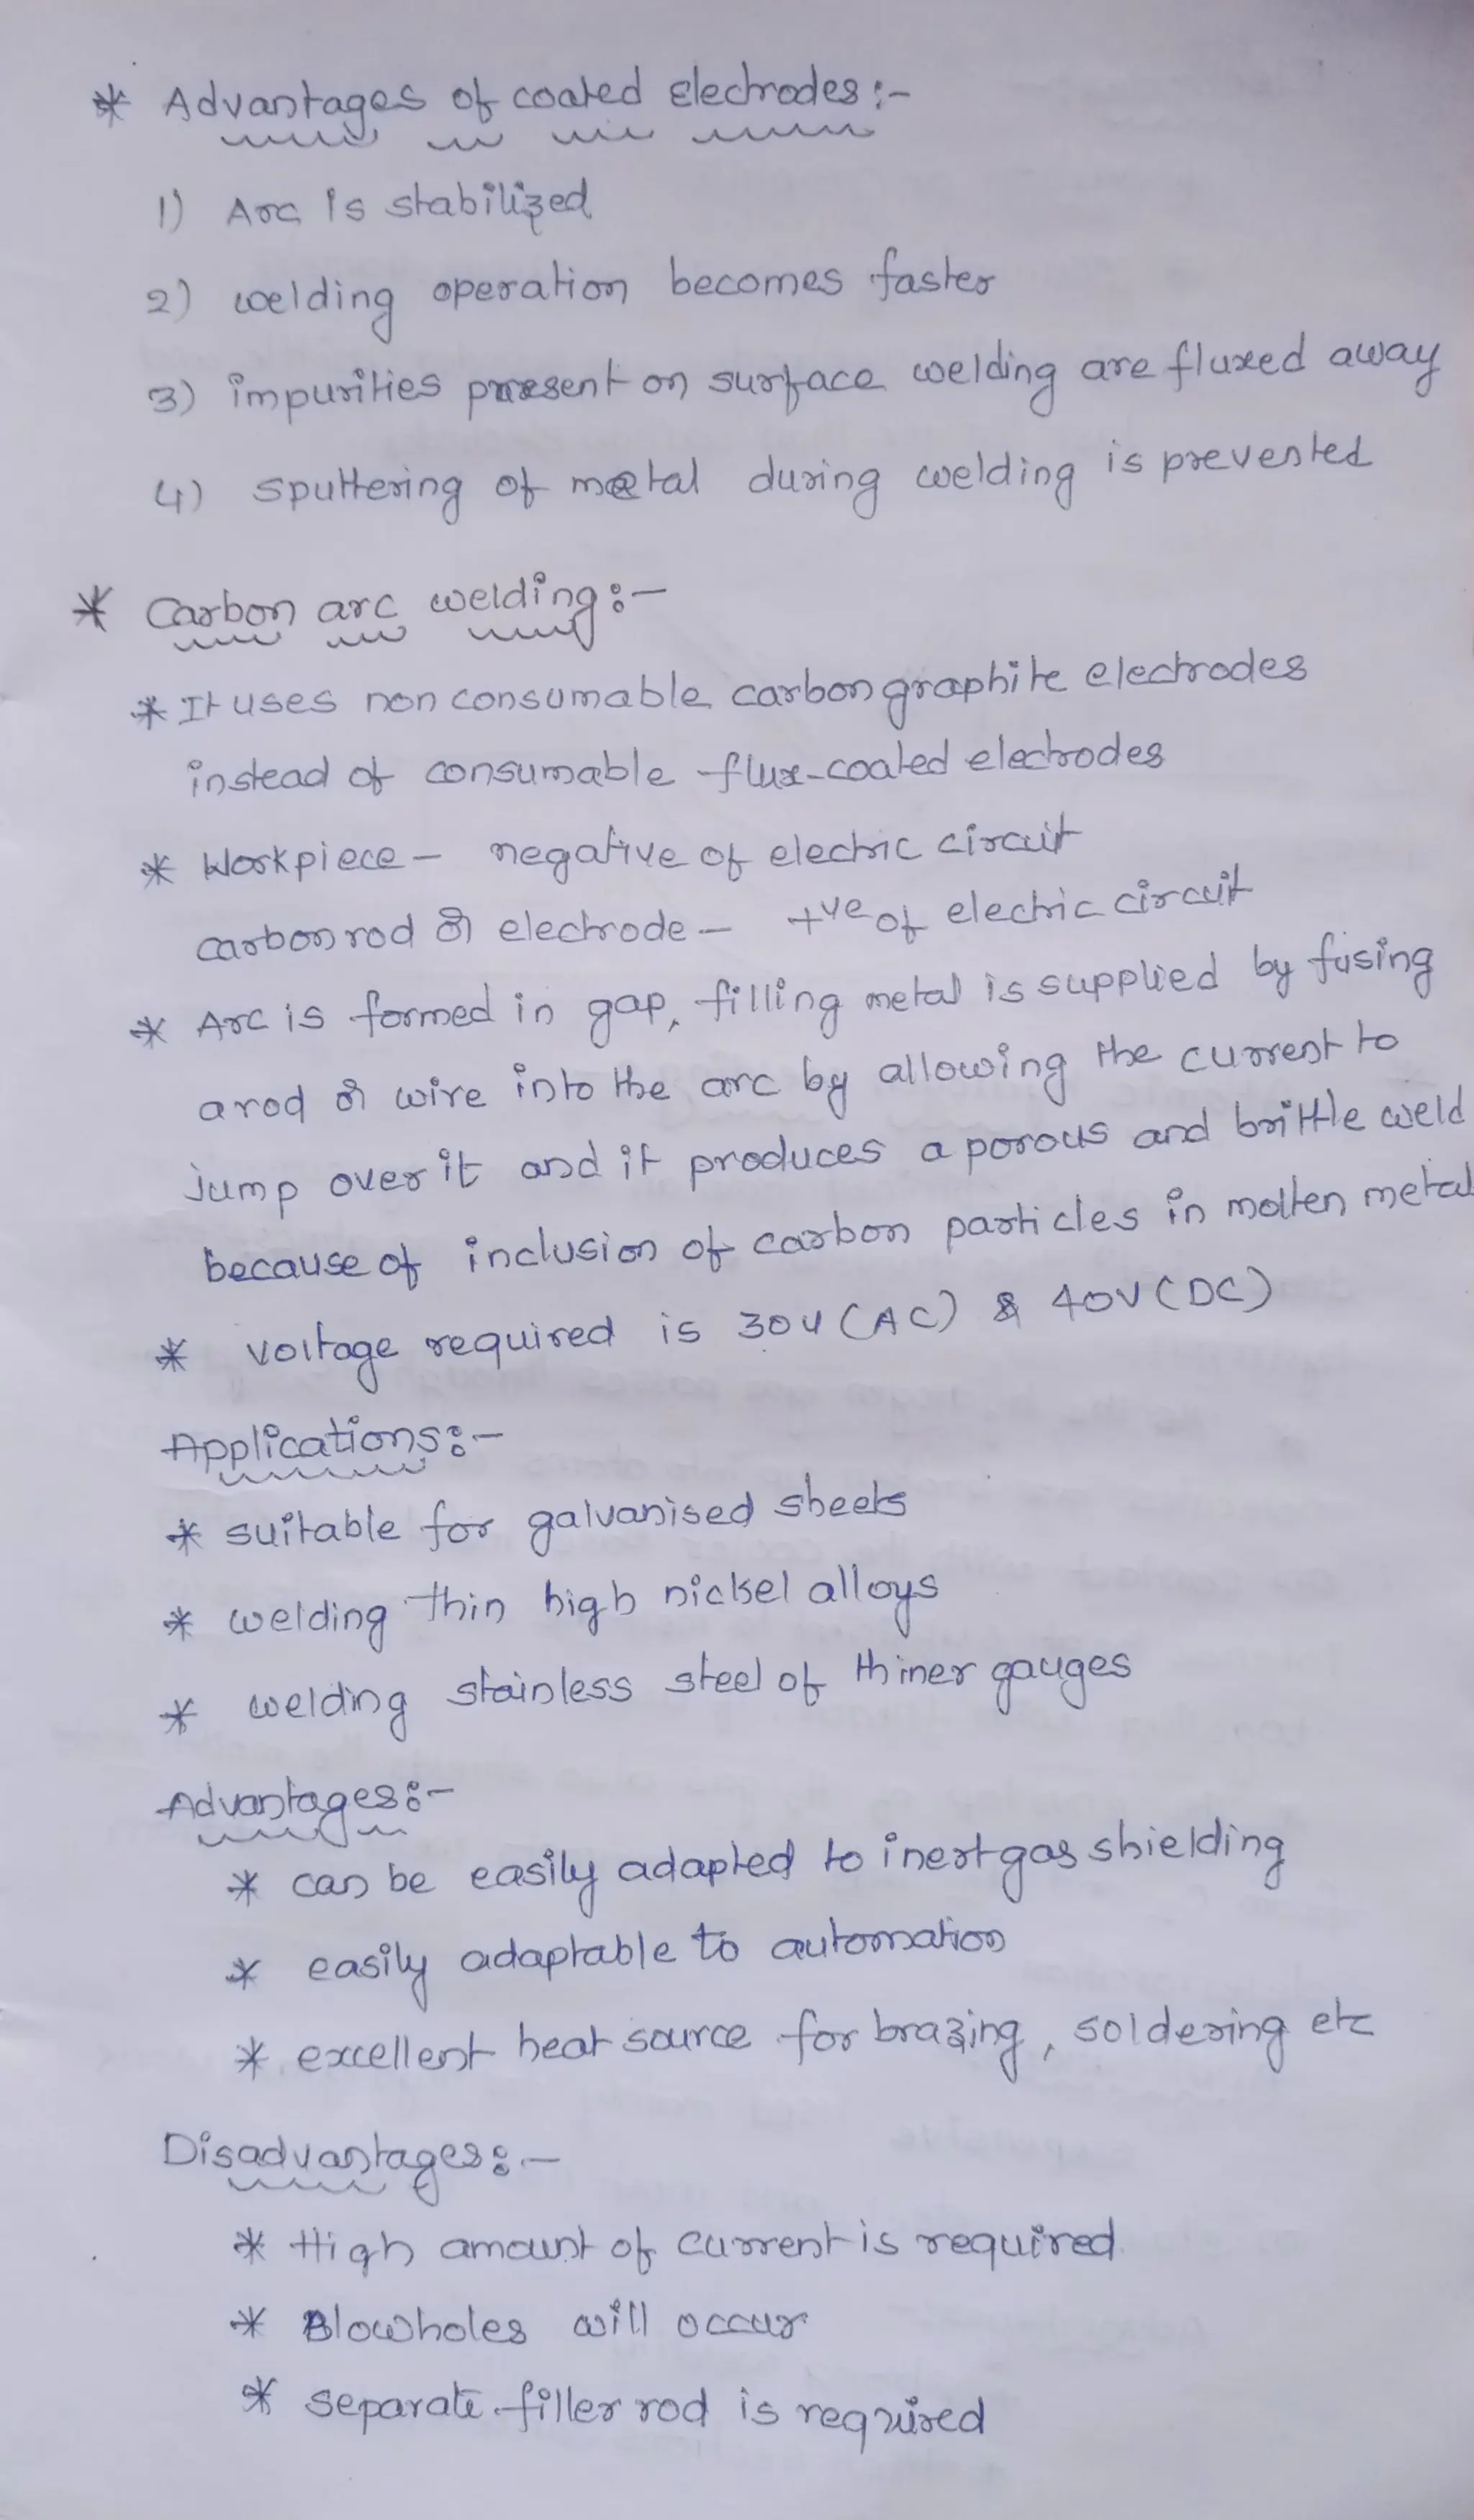 * Advantages of coated Electrodes:-
1) Arc is stabilized
2) welding operation becomes faster
3) impurities present on surface welding are fluxed away
4) sputtering of metal during welding is prevented
* Carbon arc welding:-
* It uses non consumable carbon graphite electrodes
instead of consumable flux-coated electrodes
* Workpiece - negative of electric circuit
carbon rod or electrode - +ve of electric circuit
* Arc is formed in gap, filling metal is supplied by fusing
a rod or wire into the arc by allowing the current to
jump over it and it produces a porous and brittle weld
because of inclusion of carbon particles in molten metal
* voltage required is 30V (AC) & 40V (DC)
Applications:-
* suitable for galvanised sheets
* welding thin high nickel alloys
* welding stainless steel of thiner gauges
Advantages:-
* can be easily adapted to inert gas shielding
* easily adaptable to automation
* excellent heat source for brazing, soldering etc
Disadvantages:-
* High amount of current is required
* Blowholes will occur
* separate filler rod is required